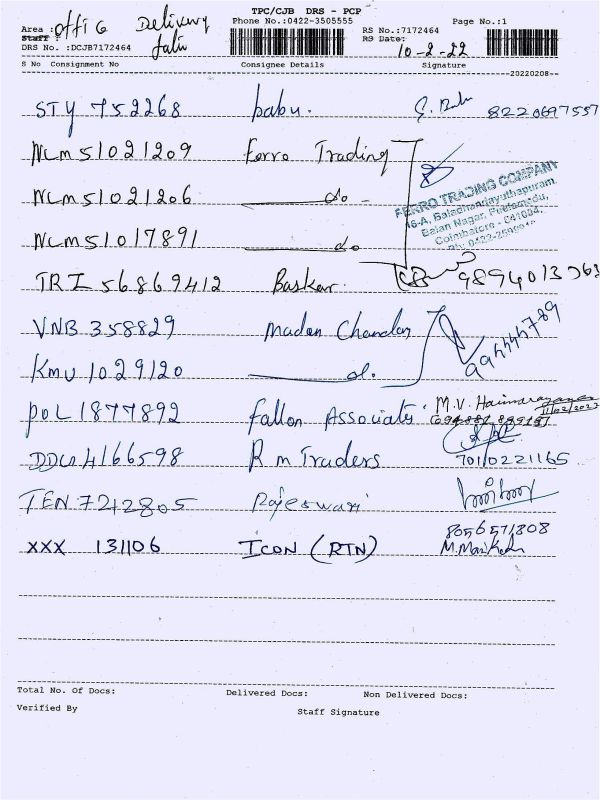 TPC/CJB DRS - PCP
Area : Office Delivery Phone No.:0422-3505555 RS No.:7172464 Page No.:1
Staff : RS Date: 10-2-22
DRS No. :DCJB7172464
S No Consignment No Consignee Details Signature
20220208
STY 752268 babu. S. Babu 8220697557
NCM51021209 Ferro Trading
NCM51021206 do
FERRO TRADING COMPANY
16-A, Balachandayuthapuram,
Balan Nagar, Peelamedu,
Coimbatore - 641004.
NCM51017891 do
TRI 56869412 Baskar.
VNB 358829 Madan Chandar
KMU 1029120 do.
POL 1877892 Fallon Associates M.V.
11/02/2022
DDC 4166598 R m Traders 70110221165
TEN 7212805 Rajeswari
XXX 131106 ICON (RTN) 8056571308
Total No. Of Docs: Delivered Docs: Non Delivered Docs:
Verified By Staff Signature